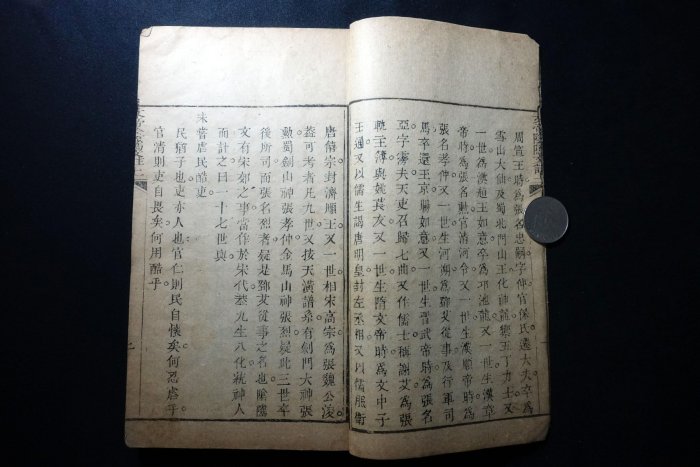 周宣王時為張名忠嗣字仲官保氏遷大夫卒為
雪山大仙及蜀北門山王化神龍變王丁力士又
一世為漢趙王如意卒為邛池龍又一世生漢章
帝時為張名勳官清河令又一世生漢順帝時為
張名孝仲又一世生河朔為鄧艾從事及行軍司
馬卒還王京賜如意又一世生晉武帝時為張名
亞字霧夫天吏召歸七曲又作儒士稱謝艾為張
軌主與姚萇友又一世生隋文帝時為文中子
王通又以儒生謁唐明皇封左丞相又以儒服衛
唐僖宗封濟順王又一世相宋高宗為張魏公浚
蓋可考者凡九世又按天漢譜系有劍門大神張
勳蜀劍山神張孝仲金馬山神張烈疑此三世卒
後所司而張名烈者疑是鄧艾從事之名也陰騭
文有宋郊之事當作於宋代葢九生八化統神人
而計之曰一十七世與
未嘗虐民酷吏
民猶子也吏亦人也官仁則民自懷矣何忍虐乎
官清則吏自畏矣何用酷乎